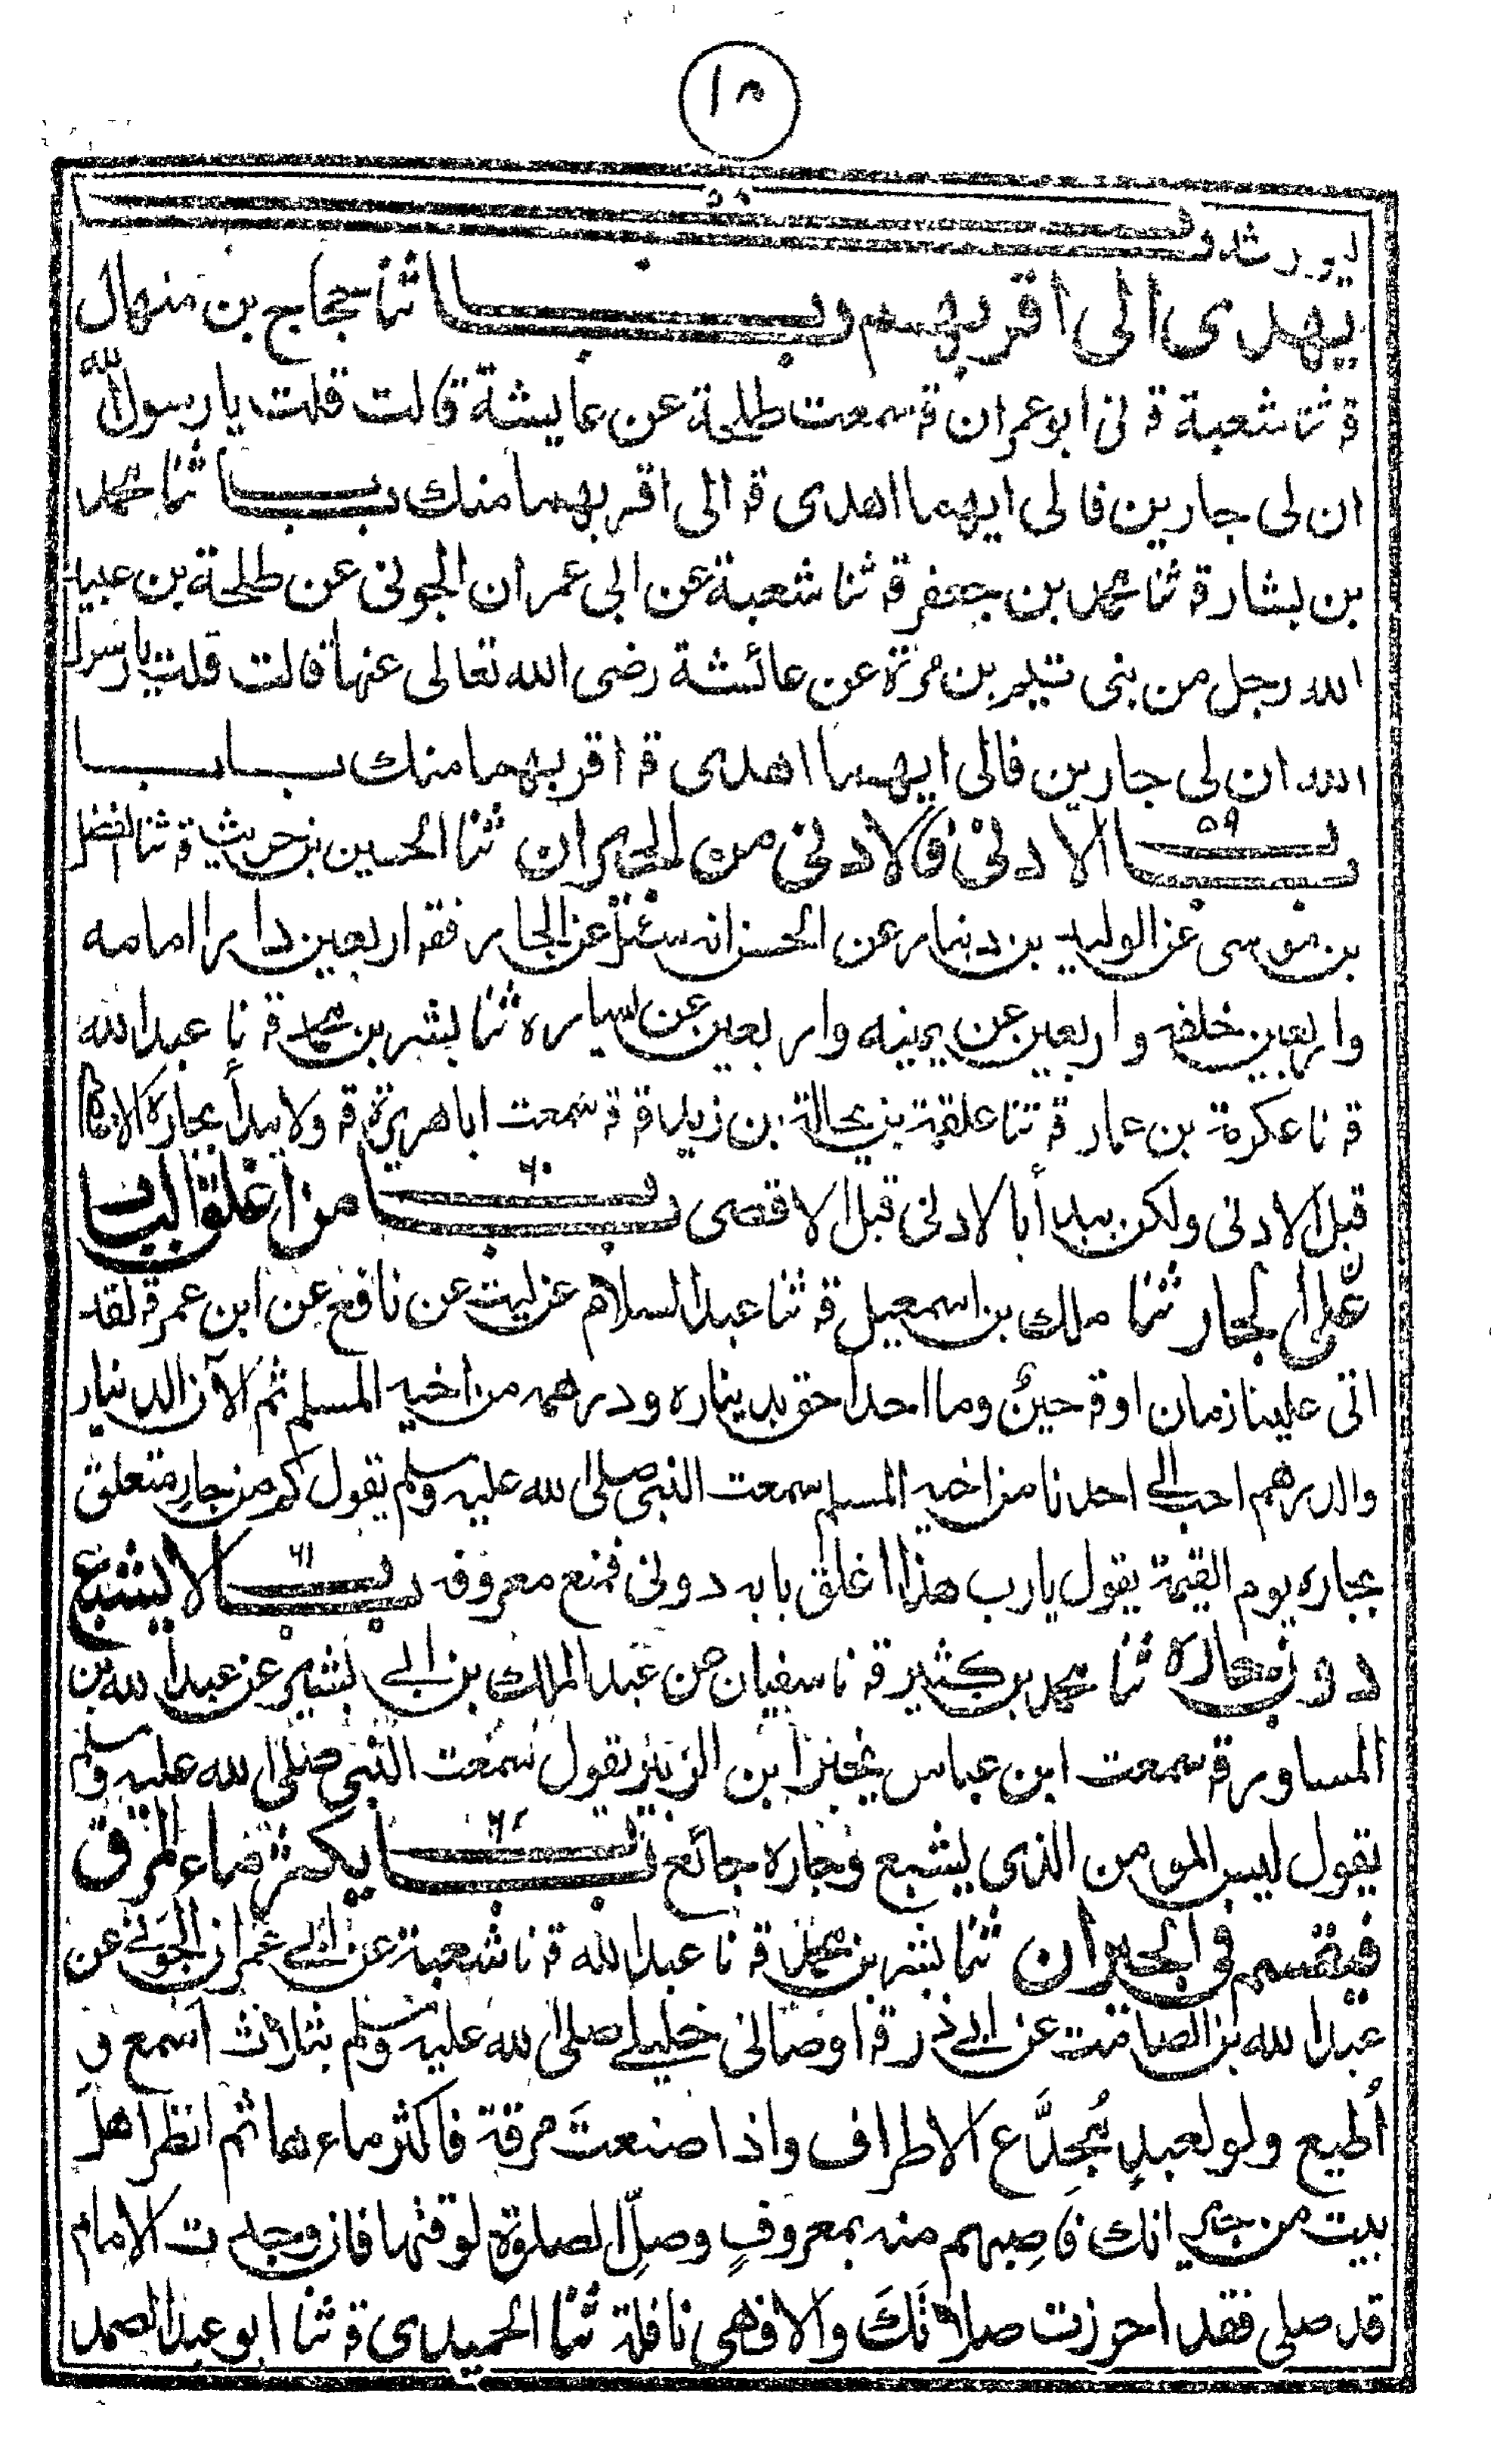 ١٨
يورثه و
يهدى الى اقربهم وبـــــــاب ثنا حجاج بن منهال
ة ثنا شعبة ة نى ابو عمران ة سمعت طلحة عن عايشة قالت قلت يا رسول الله
ان لى جارين فالى ايهما اهدى ة الى اقربهما منك بـــاب ثنا محمد
بن بشار ة ثنا محمد بن جعفر ة ثنا شعبة عن ابى عمران الجونى عن طلحة بن عبيد
الله رجل من بنى تيم بن مرة عن عائشة رضى الله تعالى عنها قالت قلت يا رسول
الله ان لى جارين فالى ايهما اهدى ة اقربهما منك بـــاب
٥٩
بـــاب الادنى فالادنى من الجيران ثنا الحسين بن حريث ة ثنا الفضل
بن موسى عن الوليد بن دينار عن الحسن انه سئل عن الجار فقه اربعين دارا امامه
واربعين خلفه واربعين عن يمينه واربعين عن يساره ثنا بشر بن محمد ة نا عبد الله
ة نا عكرمة بن عمار ة ثنا علقمة بن بجالة بن زيد ة ة سمعت ابا هريرة ة ولا يبدأ بجاره الاقصى
٦٠
قبل الادنى ولكن يبدأ بالادنى قبل الاقصى بـــاب من اغلق الباب
على الجار ثنا ملك بن اسمعيل ة ثنا عبد السلام عن ليث عن نافع عن ابن عمر ة لقد
اتى علينا زمان او ة حينٌ وما احد احق بديناره ودرهمه من اخيه المسلم ثم الآن الدينار
والدرهم احب الى احدنا من اخيه المسلم سمعت النبى صلى الله عليه وسلم يقول كم من جار متعلق
٦١
بجاره يوم القيمة يقول يا رب هذا اغلق بابه دونى فمنع معروفه بـــاب لا يشبع
دون جاره ثنا محمد بن كثير ة نا سفيان عن عبد الملك بن ابى بشير عن عبد الله بن
المساور ة سمعت ابن عباس يخبر ابن الزبير يقول سمعت النبى صلى الله عليه وسلم
٦٢
يقول ليس المومن الذى يشبع وجاره جائع بـــاب يكثر ماء المرق
فيقسم فى الجيران ثنا بشر بن محمد ة نا عبد الله ة نا شعبة عن ابى عمران الجونى عن
عبد الله بن الصامت عن ابى ذر ة اوصانى خليلى صلى الله عليه وسلم بثلاث اسمع و
أطيع ولو لعبدٍ مُجدَّع الاطراف واذا صنعتَ مرقة فاكثر ماءها ثم انظر اهل
بيت من جيرانك فاصِبهم منه بمعروفٍ وصلِّ الصلوة لوقتها فان وجدت الامام
قد صلى فقد احرزت صلاتَكَ والا فهى نافلة ثنا الحميدى ة ثنا ابو عبد الصمد